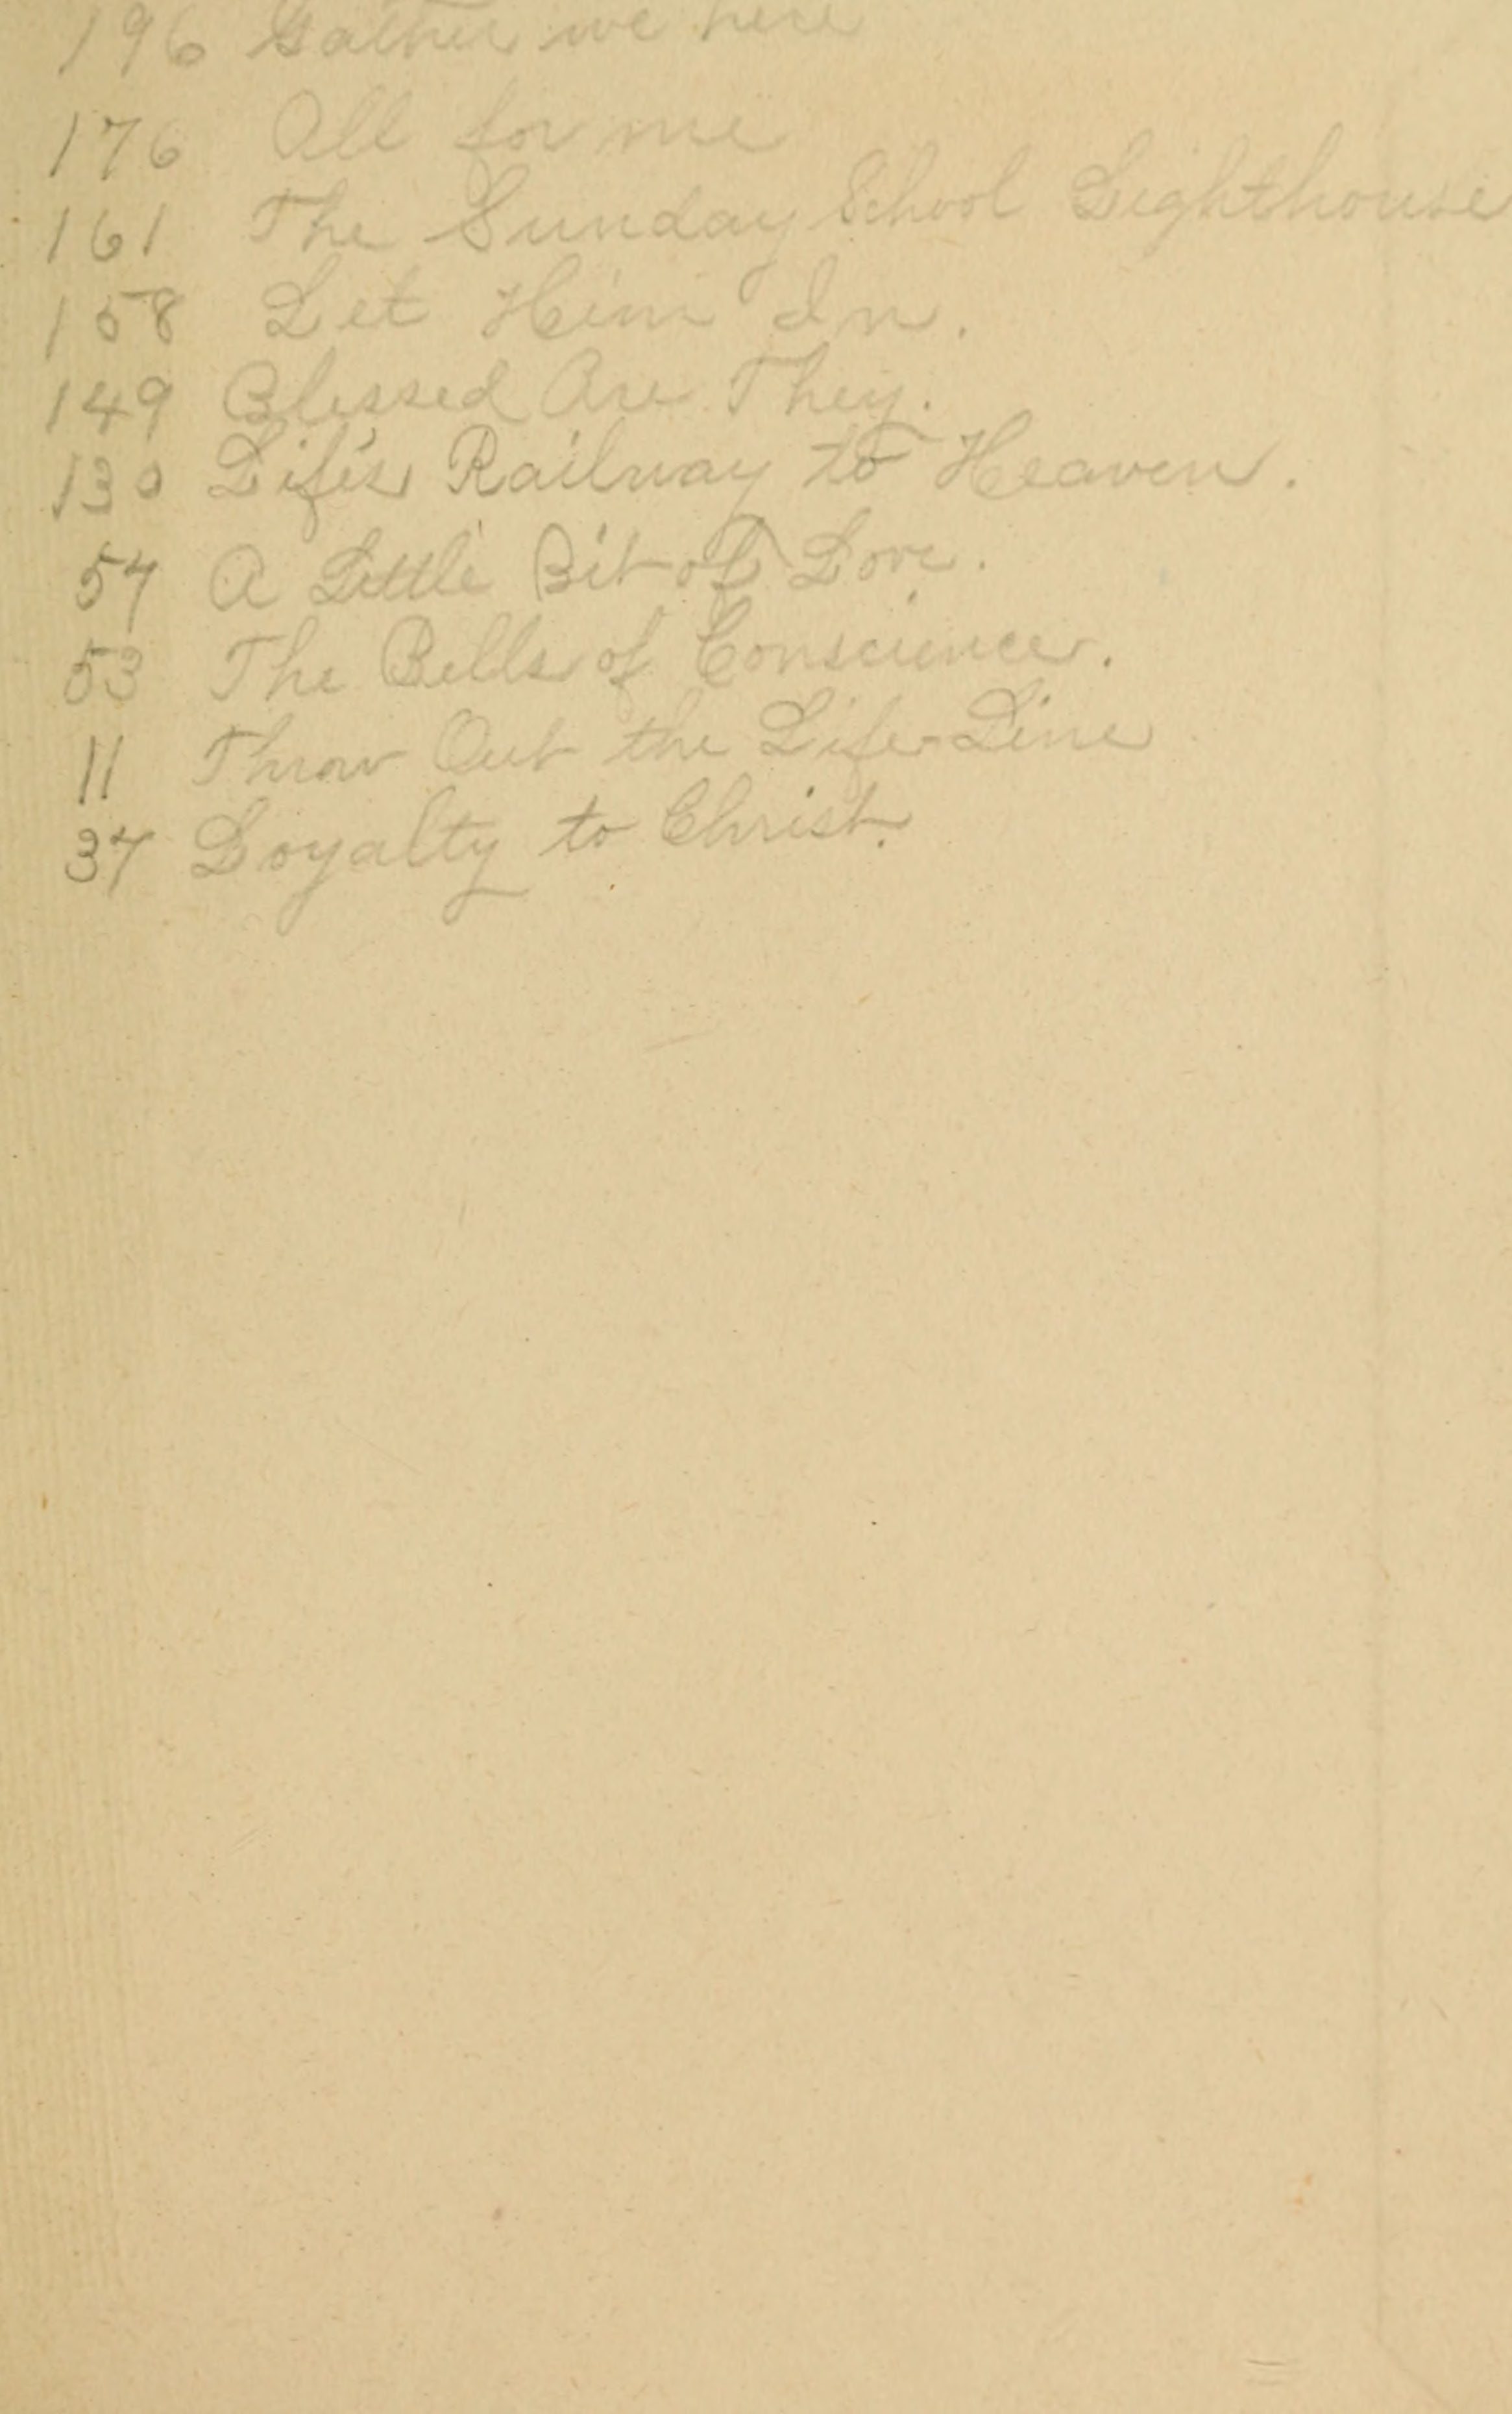 196 Gather we here
176 All for me
161 The Sunday School Lighthouse
158 Let Him In.
149 Blessed Are They.
130 Life's Railway to Heaven.
57 A Little Bit of Love.
53 The Bells of Conscience.
11 Throw Out the Life-Line
37 Loyalty to Christ.